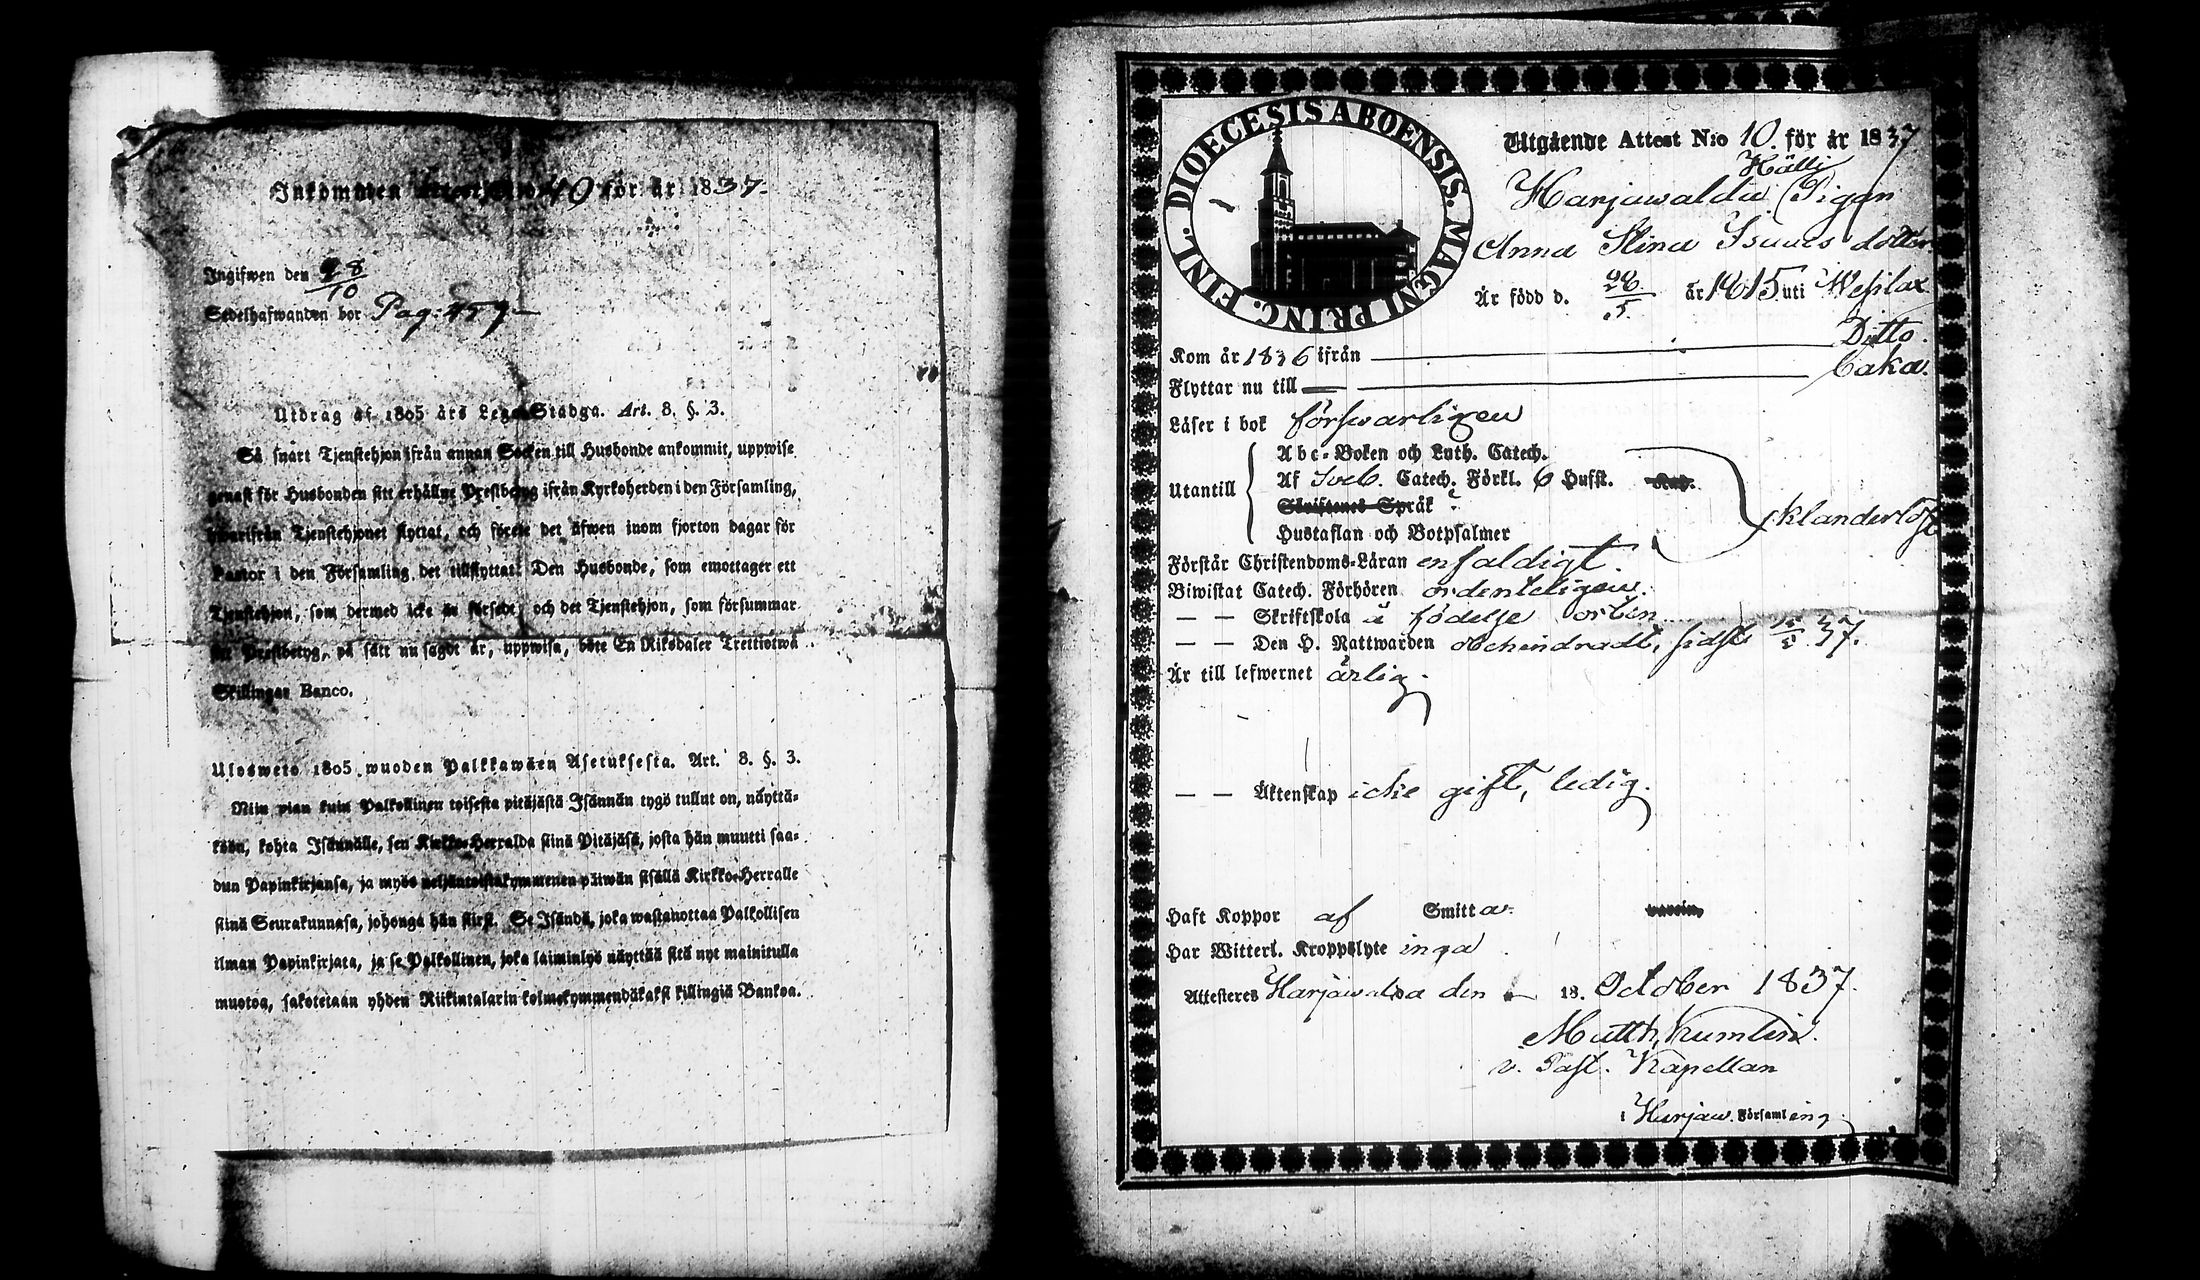 Inkommen Attest N:o 40 för år 1837.
Ingifwen den 28/10
Sedelhafwanden bor Pag: 457
Utdrag af 1805 års Lego-Stadga. Art. 8. §. 3.
Så snart Tjenstehjon ifrån annan Socken till Husbonde ankommit, uppwise
genast för Husbonden sitt erhållne Prestbetyg ifrån Kyrkoherden i den Församling,
hwarifrån Tjenstehjonet flyttat, och förete det äfwen inom fjorton dagar för
Pastor i den Församling det tillflyttat. Den Husbonde, som emottager ett
Tjenstehjon, som dermed icke är försedt, och det Tjenstehjon, som försummar
sitt Prestbetyg, på sätt nu sagdt är, uppwisa, böte En Riksdaler Trettiotwå
Skillingar Banco.
Ulosweto 1805 wuoden Palkkawäen Asetuksesta. Art. 8. §. 3.
Niin pian kuin Palkollinen toisesta pitäjästä Isännän tygö tullut on, näyttä-
köön, kohta Isännälle, sen Kirkko-Herralda siinä Pitäjäsä, josta hän muutti saa-
dun Papinkirjansa, ja myös neljäntoistakymmenen päiwän sisällä Kirkko-Herralle
siinä Seurakunnasa, johonga hän siirsi. Se Isändä, joka wastanottaa Palkollisen
ilman Papinkirjata, ja se Palkollinen, joka laiminlyö näyttää sitä nyt mainitulla
muotoa, sakotetaan yhden Riikintalarin kolmekymmendäkaksi killingiä Bankoa.
DIOECESIS ABOENSIS. MAGNI PRINC. FINL.
Utgående Attest N:o 10. för år 1837
Hälli
Harjawalda Pigan
Anna Stina Isaacs dotter
Är född d. 28/5. år 1815 uti Wesilax
Kom år 1836 ifrån Ditto.
Flyttar nu till Caka.
Läser i bok förswarligen
Utantill
Abc-Boken och Luth. Catech.
Af Sveb. Catech. Förkl. 6 Hufst. Kap.
Skriftenes Språk
Hustaflan och Botpsalmer
oklanderligt
Förstår Christendoms-Läran enfaldigt.
Biwistat Catech. Förhören ordenteligen.
— — Skriftskola å födelse orten
— — Den H. Nattwarden obehindradt, sidst 15/5 37.
Är till lefwernet ärlig.
— — Äktenskap icke gift, ledig.
Haft Koppor af Smitta. vaccin.
Har Witterl. Kroppslyte inga
Attesteres Harjawalda den 18. October 1837.
Matth. Kumlin.
v. Past. Kapellan
i Harjaw. Församling